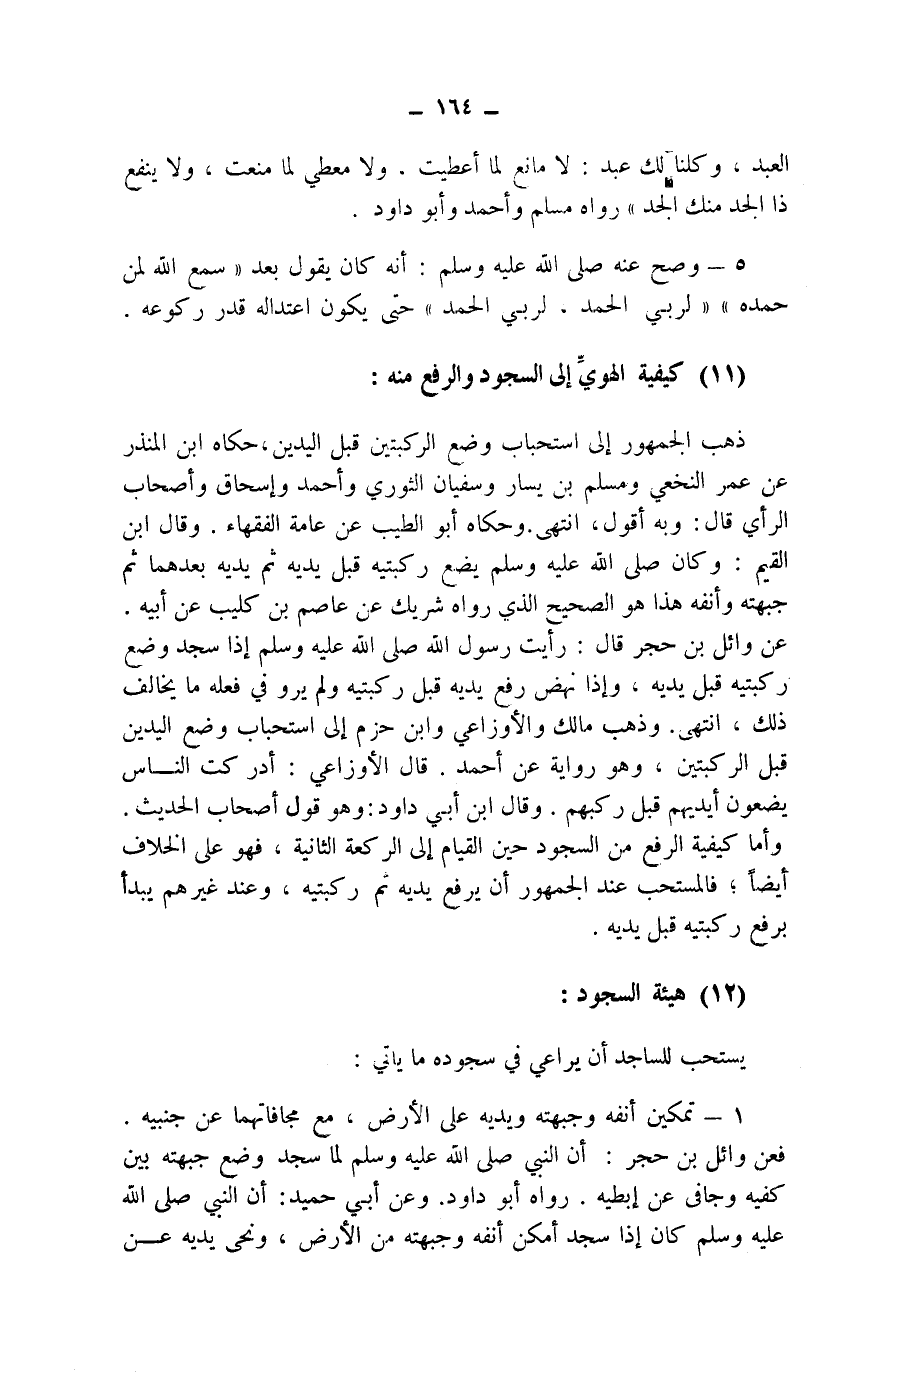 ـ ١٦٤ ـ
العبد ، وكلنا لك عبد : لا مانع لما أعطيت . ولا معطي لما منعت ، ولا ينفع
ذا الجد منك الجد » رواه مسلم وأحمد وأبو داود .
٥ – وصح عنه صلى الله عليه وسلم : أنه كان يقول بعد « سمع الله لمن
حمده » « لربي الحمد . لربي الحمد » حتى يكون اعتداله قدر ركوعه .
(١١) كيفية الهويِّ إلى السجود والرفع منه :
ذهب الجمهور إلى استحباب وضع الركبتين قبل اليدين،حكاه ابن المنذر
عن عمر النخعي ومسلم بن يسار وسفيان الثوري وأحمد وإسحاق وأصحاب
الرأي قال: وبه أقول، انتهى.وحكاه أبو الطيب عن عامة الفقهاء . وقال ابن
القيم : وكان صلى الله عليه وسلم يضع ركبتيه قبل يديه ثم يديه بعدهما ثم
جبهته وأنفه هذا هو الصحيح الذي رواه شريك عن عاصم بن كليب عن أبيه .
عن وائل بن حجر قال : رأيت رسول الله صلى الله عليه وسلم إذا سجد وضع
ركبتيه قبل يديه ، وإذا نهض رفع يديه قبل ركبتيه ولم يرو في فعله ما يخالف
ذلك ، انتهى. وذهب مالك والأوزاعي وابن حزم إلى استحباب وضع اليدين
قبل الركبتين ، وهو رواية عن أحمد . قال الأوزاعي : أدركت النــاس
يضعون أيديهم قبل ركبهم . وقال ابن أبي داود:وهو قول أصحاب الحديث .
وأما كيفية الرفع من السجود حين القيام إلى الركعة الثانية ، فهو على الخلاف
أيضاً ؛ فالمستحب عند الجمهور أن يرفع يديه ثم ركبتيه ، وعند غيرهم يبدأ
برفع ركبتيه قبل يديه .
(١٢) هيئة السجود :
يستحب للساجد أن يراعي في سجوده ما يأتي :
١ – تمكين أنفه وجبهته ويديه على الأرض ، مع مجافاتهما عن جنبيه .
فعن وائل بن حجر : أن النبي صلى الله عليه وسلم لما سجد وضع جبهته بين
كفيه وجافى عن إبطيه . رواه أبو داود. وعن أبي حميد: أن النبي صلى الله
عليه وسلم كان إذا سجد أمكن أنفه وجبهته من الأرض ، ونحى يديه عـــن